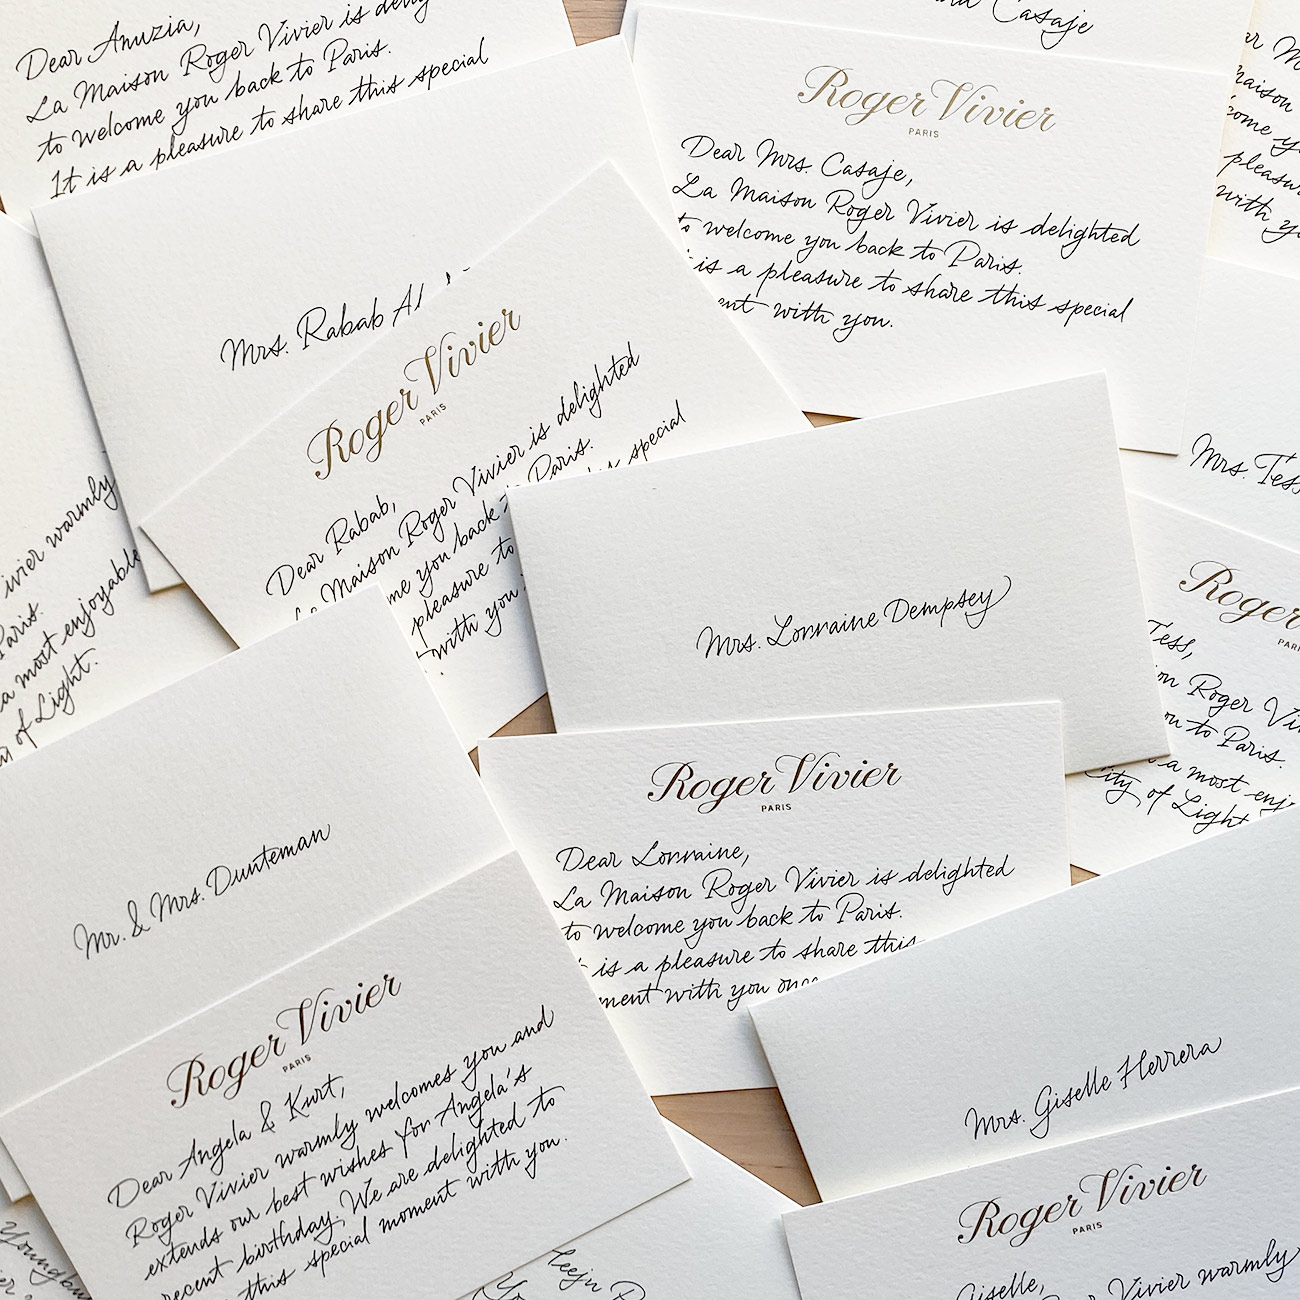 Dear Anuzia,
La Maison Roger Vivier is
to welcome you back to Paris.
It is a pleasure to share this special
Casaje
Roger Vivier
PARIS
Dear Mrs. Casaje,
La Maison Roger Vivier is delighted
to welcome you back to Paris.
is a pleasure to share this special
with you.
Mrs. Rabab Al
Roger Vivier
PARIS
Dear Rabab,
La Maison Roger Vivier is delighted
me you back to Paris.
pleasure to special
with you
ivier warmly
Paris.
a most enjoyable
of Light.
Mrs. Lorraine Dempsey
Mrs. Tess
Roger
PARIS
Tess,
Roger Vi
you to Paris.
a most enj
City of Light
Roger Vivier
PARIS
Dear Lorraine,
La Maison Roger Vivier is delighted
to welcome you back to Paris.
is a pleasure to share this
ment with you once
Mr. & Mrs. Dunteman
Roger Vivier
PARIS
Dear Angela & Kurt,
Roger Vivier warmly welcomes you and
extends our best wishes for Angela's
recent birthday. We are delighted to
this special moment with you.
Mrs. Giselle Herrera
Roger Vivier
PARIS
Giselle,
Roger Vivier warmly